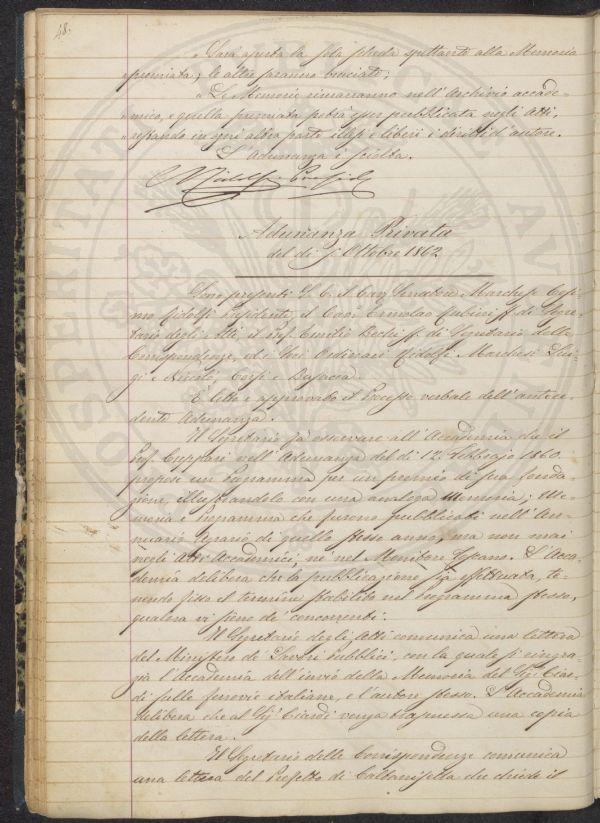 48.
„ Sarà aperta la sola scheda spettante alla Memoria
„ premiata; le altre saranno bruciate;
„ Le Memorie rimarranno nell'Archivio accade-
„ mico, e quella premiata potrà esser pubblicata negli Atti,
„ restando in ogni altra parte illesi e liberi i diritti d'autore.
L'adunanza è sciolta.
Adunanza Privata
del dì Ottobre 1862
Sono presenti S. E. il Cav. Senatore Marchese Cosi-
mo Ridolfi Presidente, il Cav. Ermolao Rubieri ff. di Segre-
tario degli Atti, il Prof. Emilio Bechi ff. di Segretario delle
Corrispondenze, ed i Soci Ordinari Ridolfi Marchesi Lui-
gi e Niccolò, Corsi e
È letto e approvato il Processo verbale dell'antece-
dente Adunanza.
Il Segretario fa osservare all'Accademia che il
Prof. Cuppari nell'Adunanza del dì 12 Febbrajo 1860.
propose un Programma per un premio di sua fonda-
zione, illustrandolo con una analoga Memoria; Me-
moria e Programma che furono pubblicati nell'An-
nuario Agrario di quello stesso anno, ma non mai
negli Atti Accademici, nè nel Monitore Toscano. L'Acca-
demia delibera che la pubblicazione sia effettuata, te-
nendo fisso il termine stabilito nel Programma stesso,
qualora vi sieno de' concorrenti.
Il Segretario degli Atti comunica una lettera
del Ministero di Lavori Pubblici, con la quale si ringra-
zia l'Accademia dell'invio della Memoria del Sig. Ciar-
di sulle ferrovie italiane, e l'autore stesso. L'Accademia
delibera che al Sig. Ciardi venga trasmessa una copia
della lettera.
Il Segretario delle Corrispondenze comunica
una lettera del Prefetto di Caltanissetta che chiede il